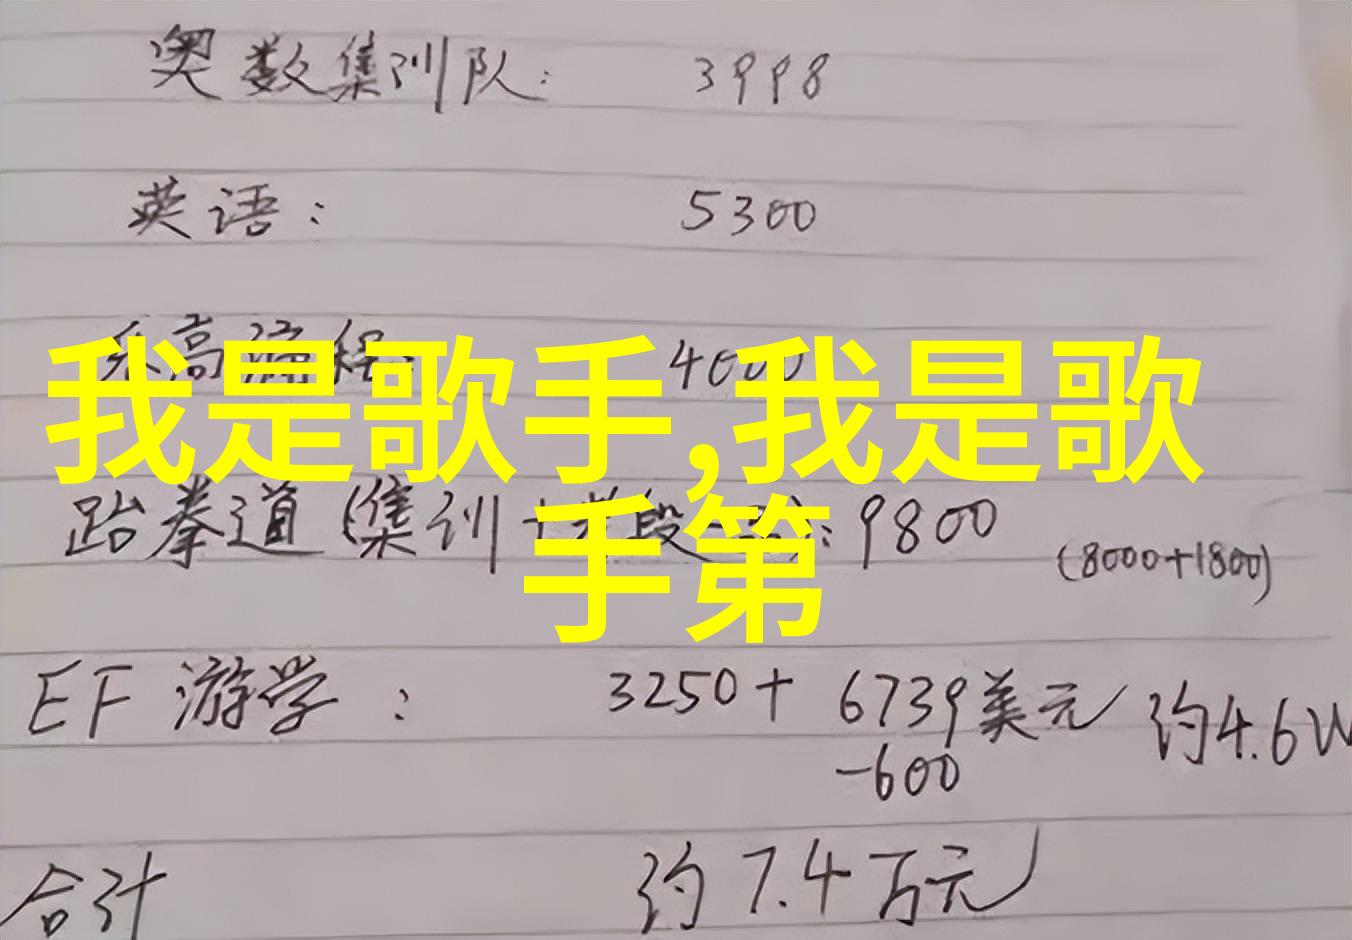 奥数集训队: 3998
英语: 5300
乐高编程: 4000
我是歌手,我是歌
手第
跆拳道(集训+考段 9800
(8000+1800)
EF 游学: 3250+ 6739美元 约4.6W
-600
合计 约7.4万元